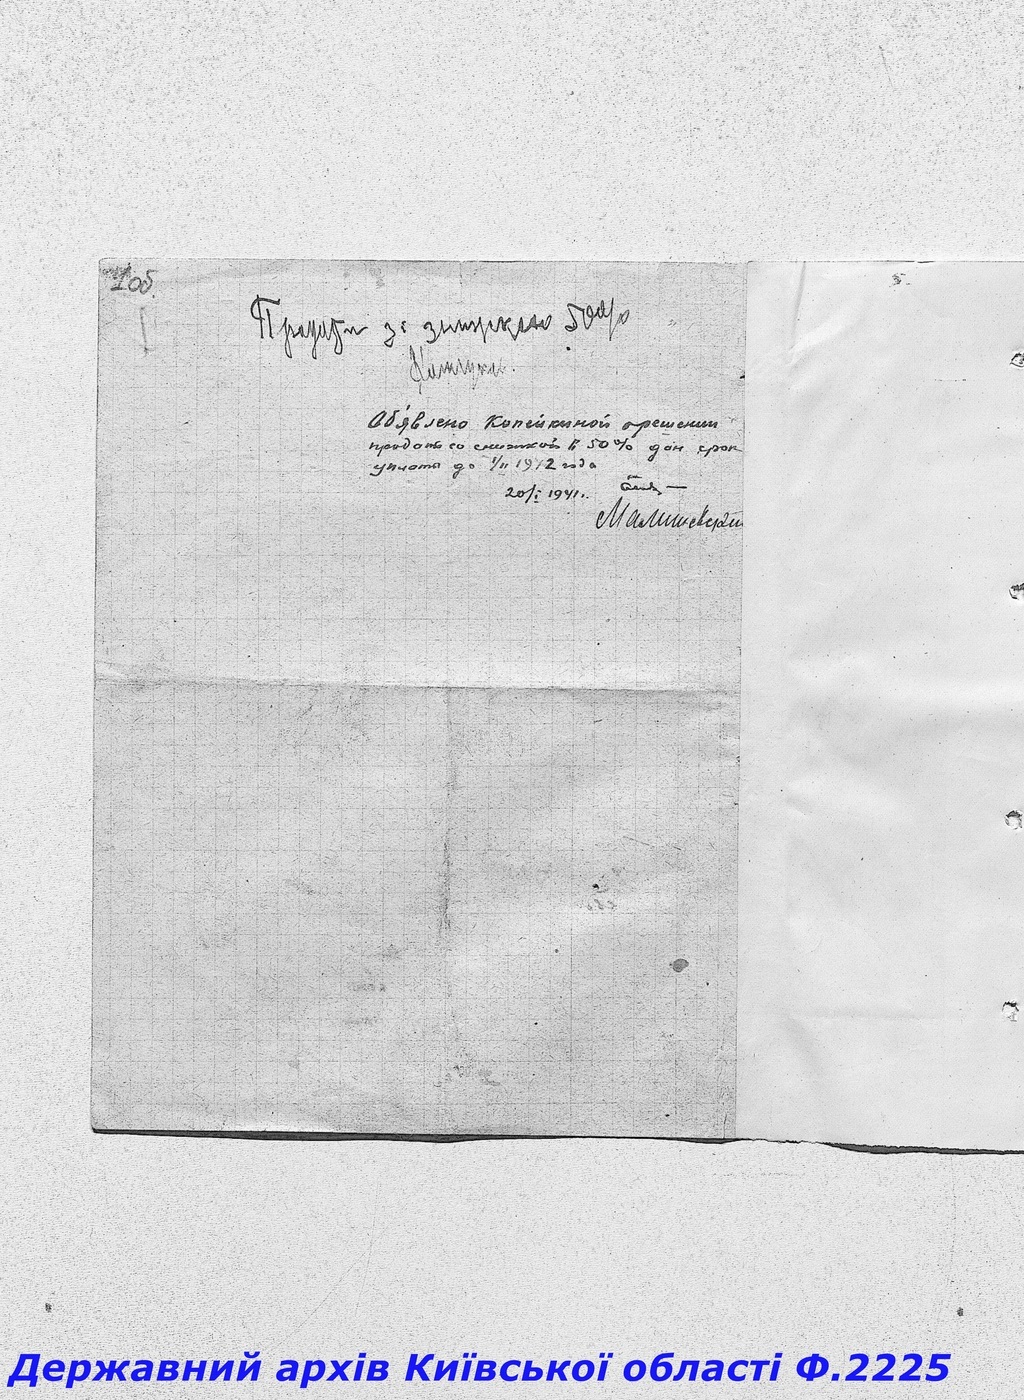 1об.
Продати зі знижкою 50%
Обявлено Копейкиной о решении
продать со снижкой в 50% дан срок
уплаты до 1/II 1942 года
20/I 1941г.
Малиновский
Державний архів Київської області Ф.2225